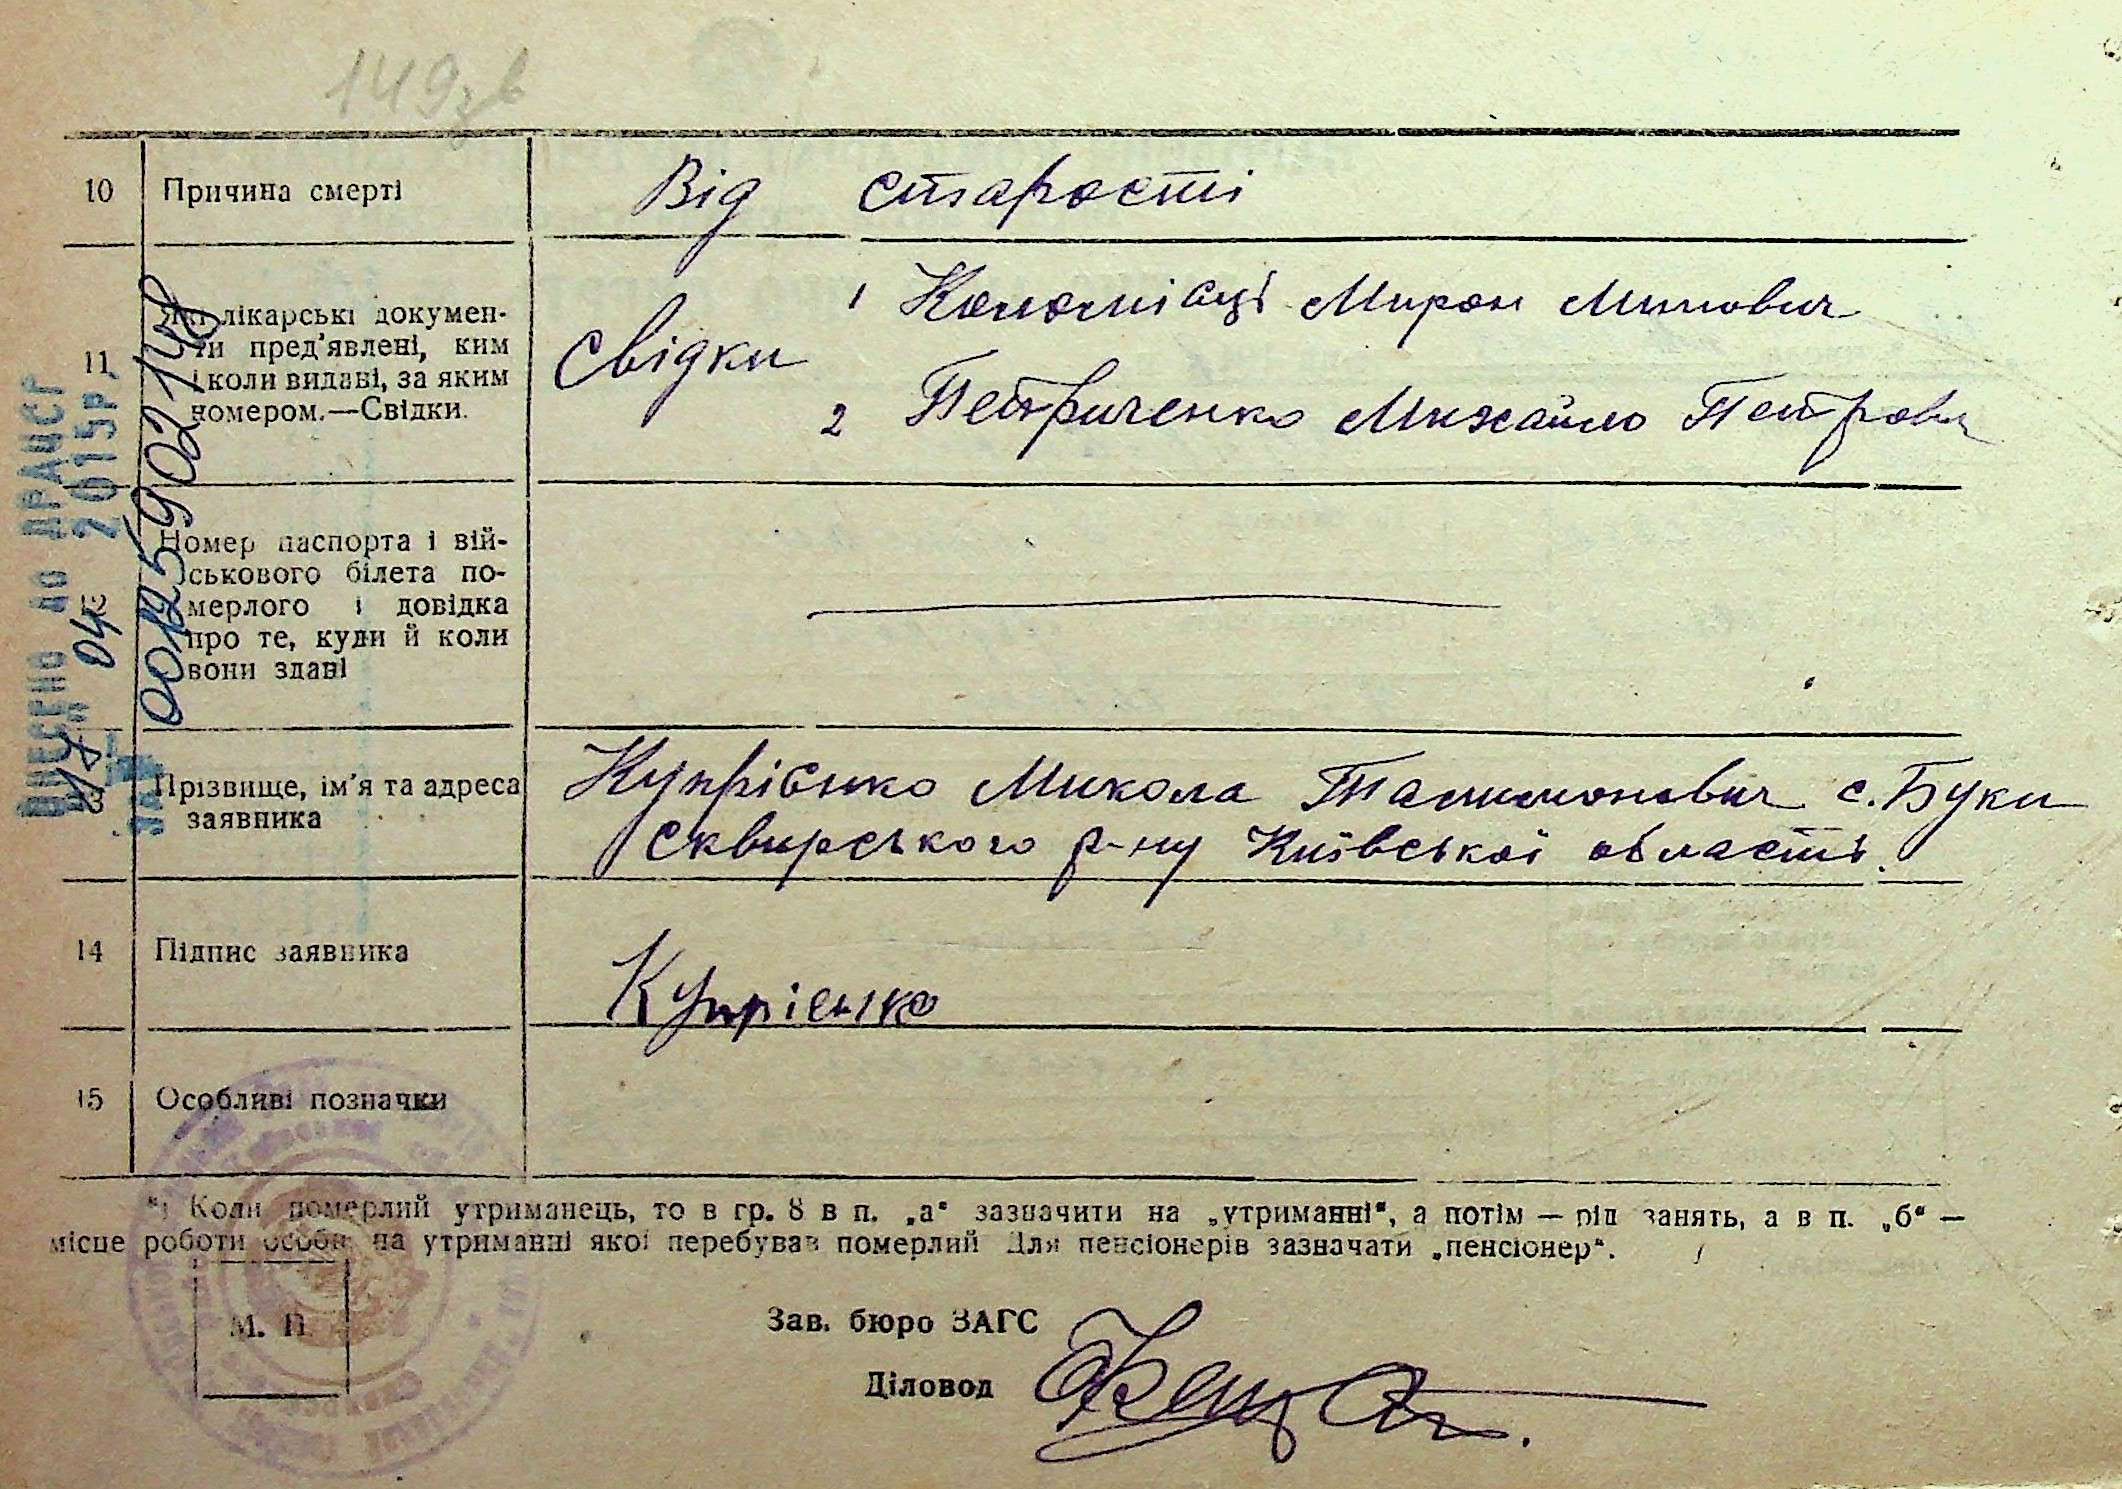 149зв
10 Причина смерті Від старости
11 Які лікарські докумен-
ти пред'явлені, ким
і коли видані, за яким
номером.—Свідки.
Свідки
1 Мирон
2 Петриченко Михайло Петрович
12 Номер паспорта і вій-
ськового білета по-
мерлого і довідка
про те, куди й коли
вони здані
13 Прізвище, ім'я та адреса
заявника
Купрієнко Микола с. Буки
Сквирського р-ну Київської області.
14 Підпис заявника Купрієнко
15 Особливі позначки
*) Коли померлий утриманець, то в гр. 8 в п. „а“ зазначити на „утриманні“, а потім — рід занять, а в п. „б“ —
місце роботи особи, на утриманні якої перебував померлий Для пенсіонерів зазначати „пенсіонер“.
М. П.
Зав. бюро ЗАГС
Діловод
ВНЕСЕНО ДО ДРАЦСГ
04 2015р.
За №
00125902148